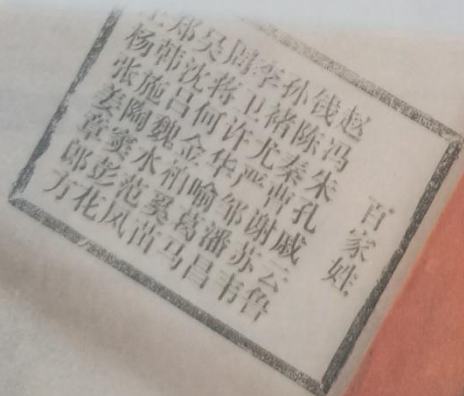 百家姓
赵钱孙李周吴郑王
冯陈褚卫蒋沈韩杨
朱秦尤许何吕施张
孔曹严华金魏陶姜
戚谢邹喻柏水窦章
云苏潘葛奚范彭郎
鲁韦昌马苗凤花方